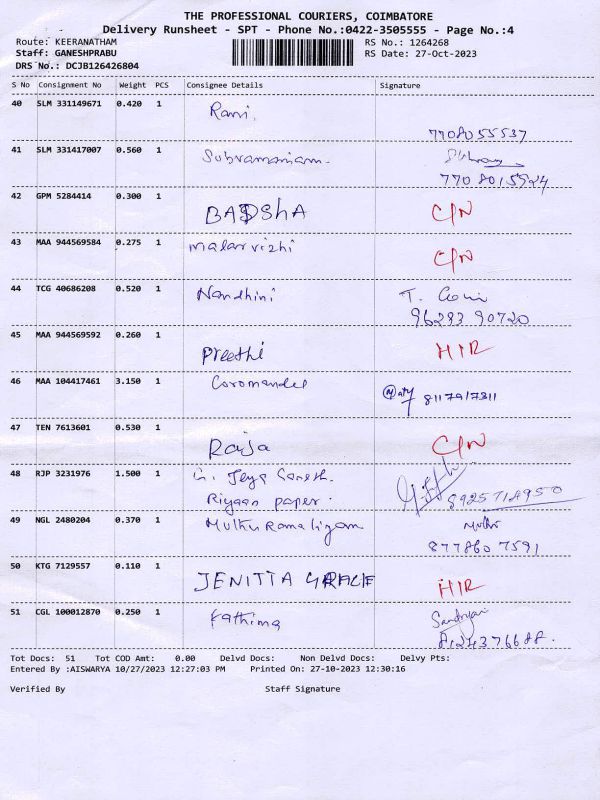 THE PROFESSIONAL COURIERS, COIMBATORE
Delivery Runsheet - SPT - Phone No.:0422-3505555 - Page No.:4
Route: KEERANATHAM RS No.: 1264268
Staff: GANESHPRABU RS Date: 27-Oct-2023
DRS No.: DCJB126426804
S No Consignment No Weight PCS Consignee Details Signature
40 SLM 331149671 0.420 1 Rani.
7708055537
41 SLM 331417007 0.560 1 Subramaniam.
7708015924
42 GPM 5284414 0.300 1 BADSHA C/N
43 MAA 944569584 0.275 1 malarvizhi C/N
44 TCG 40686208 0.520 1 Nandhini T.
96293 90720
45 MAA 944569592 0.260 1 Preethi HIR
46 MAA 104417461 3.150 1 Coromandel
8117917311
47 TEN 7613601 0.530 1 Raja C/N
48 RJP 3231976 1.500 1 G. Jeya Ganesh.
Riyaan paper. 8925718950
49 NGL 2480204 0.370 1 Muthu Ramaligam Muthu
877860 7591
50 KTG 7129557 0.110 1 JENITTA GRACE HIR
51 CGL 100012870 0.250 1 Fathima
8124376688.
Tot Docs: 51 Tot COD Amt: 0.00 Delvd Docs: Non Delvd Docs: Delvy Pts:
Entered By :AISWARYA 10/27/2023 12:27:03 PM Printed On: 27-10-2023 12:30:16
Verified By Staff Signature